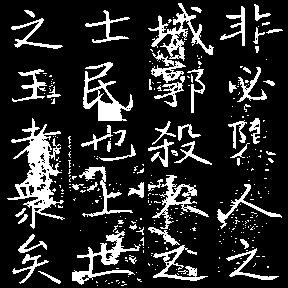 非必隳人之
城郭殺人之
士民也上世
之王者衆矣